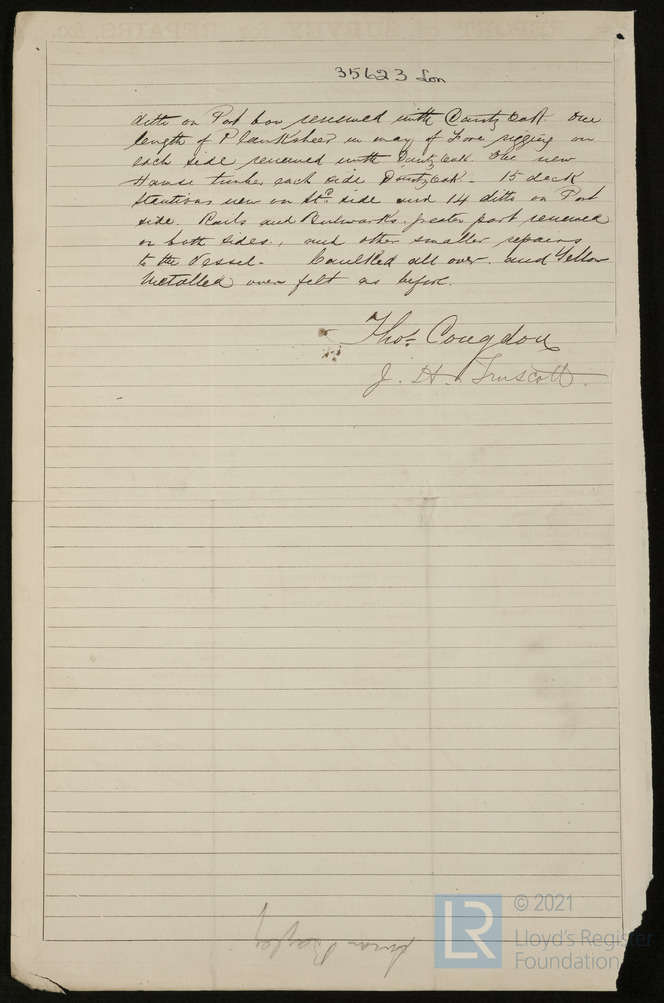 35623 Lon
ditto on Port bow renewed with Dantz Oak One
length of Planksheer in way of Fore rigging on
each side renewed with Dantz Oak. One new
Hawse timber each side Dantz Oak. 15 deck
Stantions new on Std side and 14 ditto on Port
side. Rails and Bulwarks, greater part renewed
on both sides, and other smaller repairs
to the Vessel. Caulked all over, and Yellow
Metalled over felt as before.
Thos Congdon
J. H. Truscott
© 2021
Lloyd's Register
Foundation